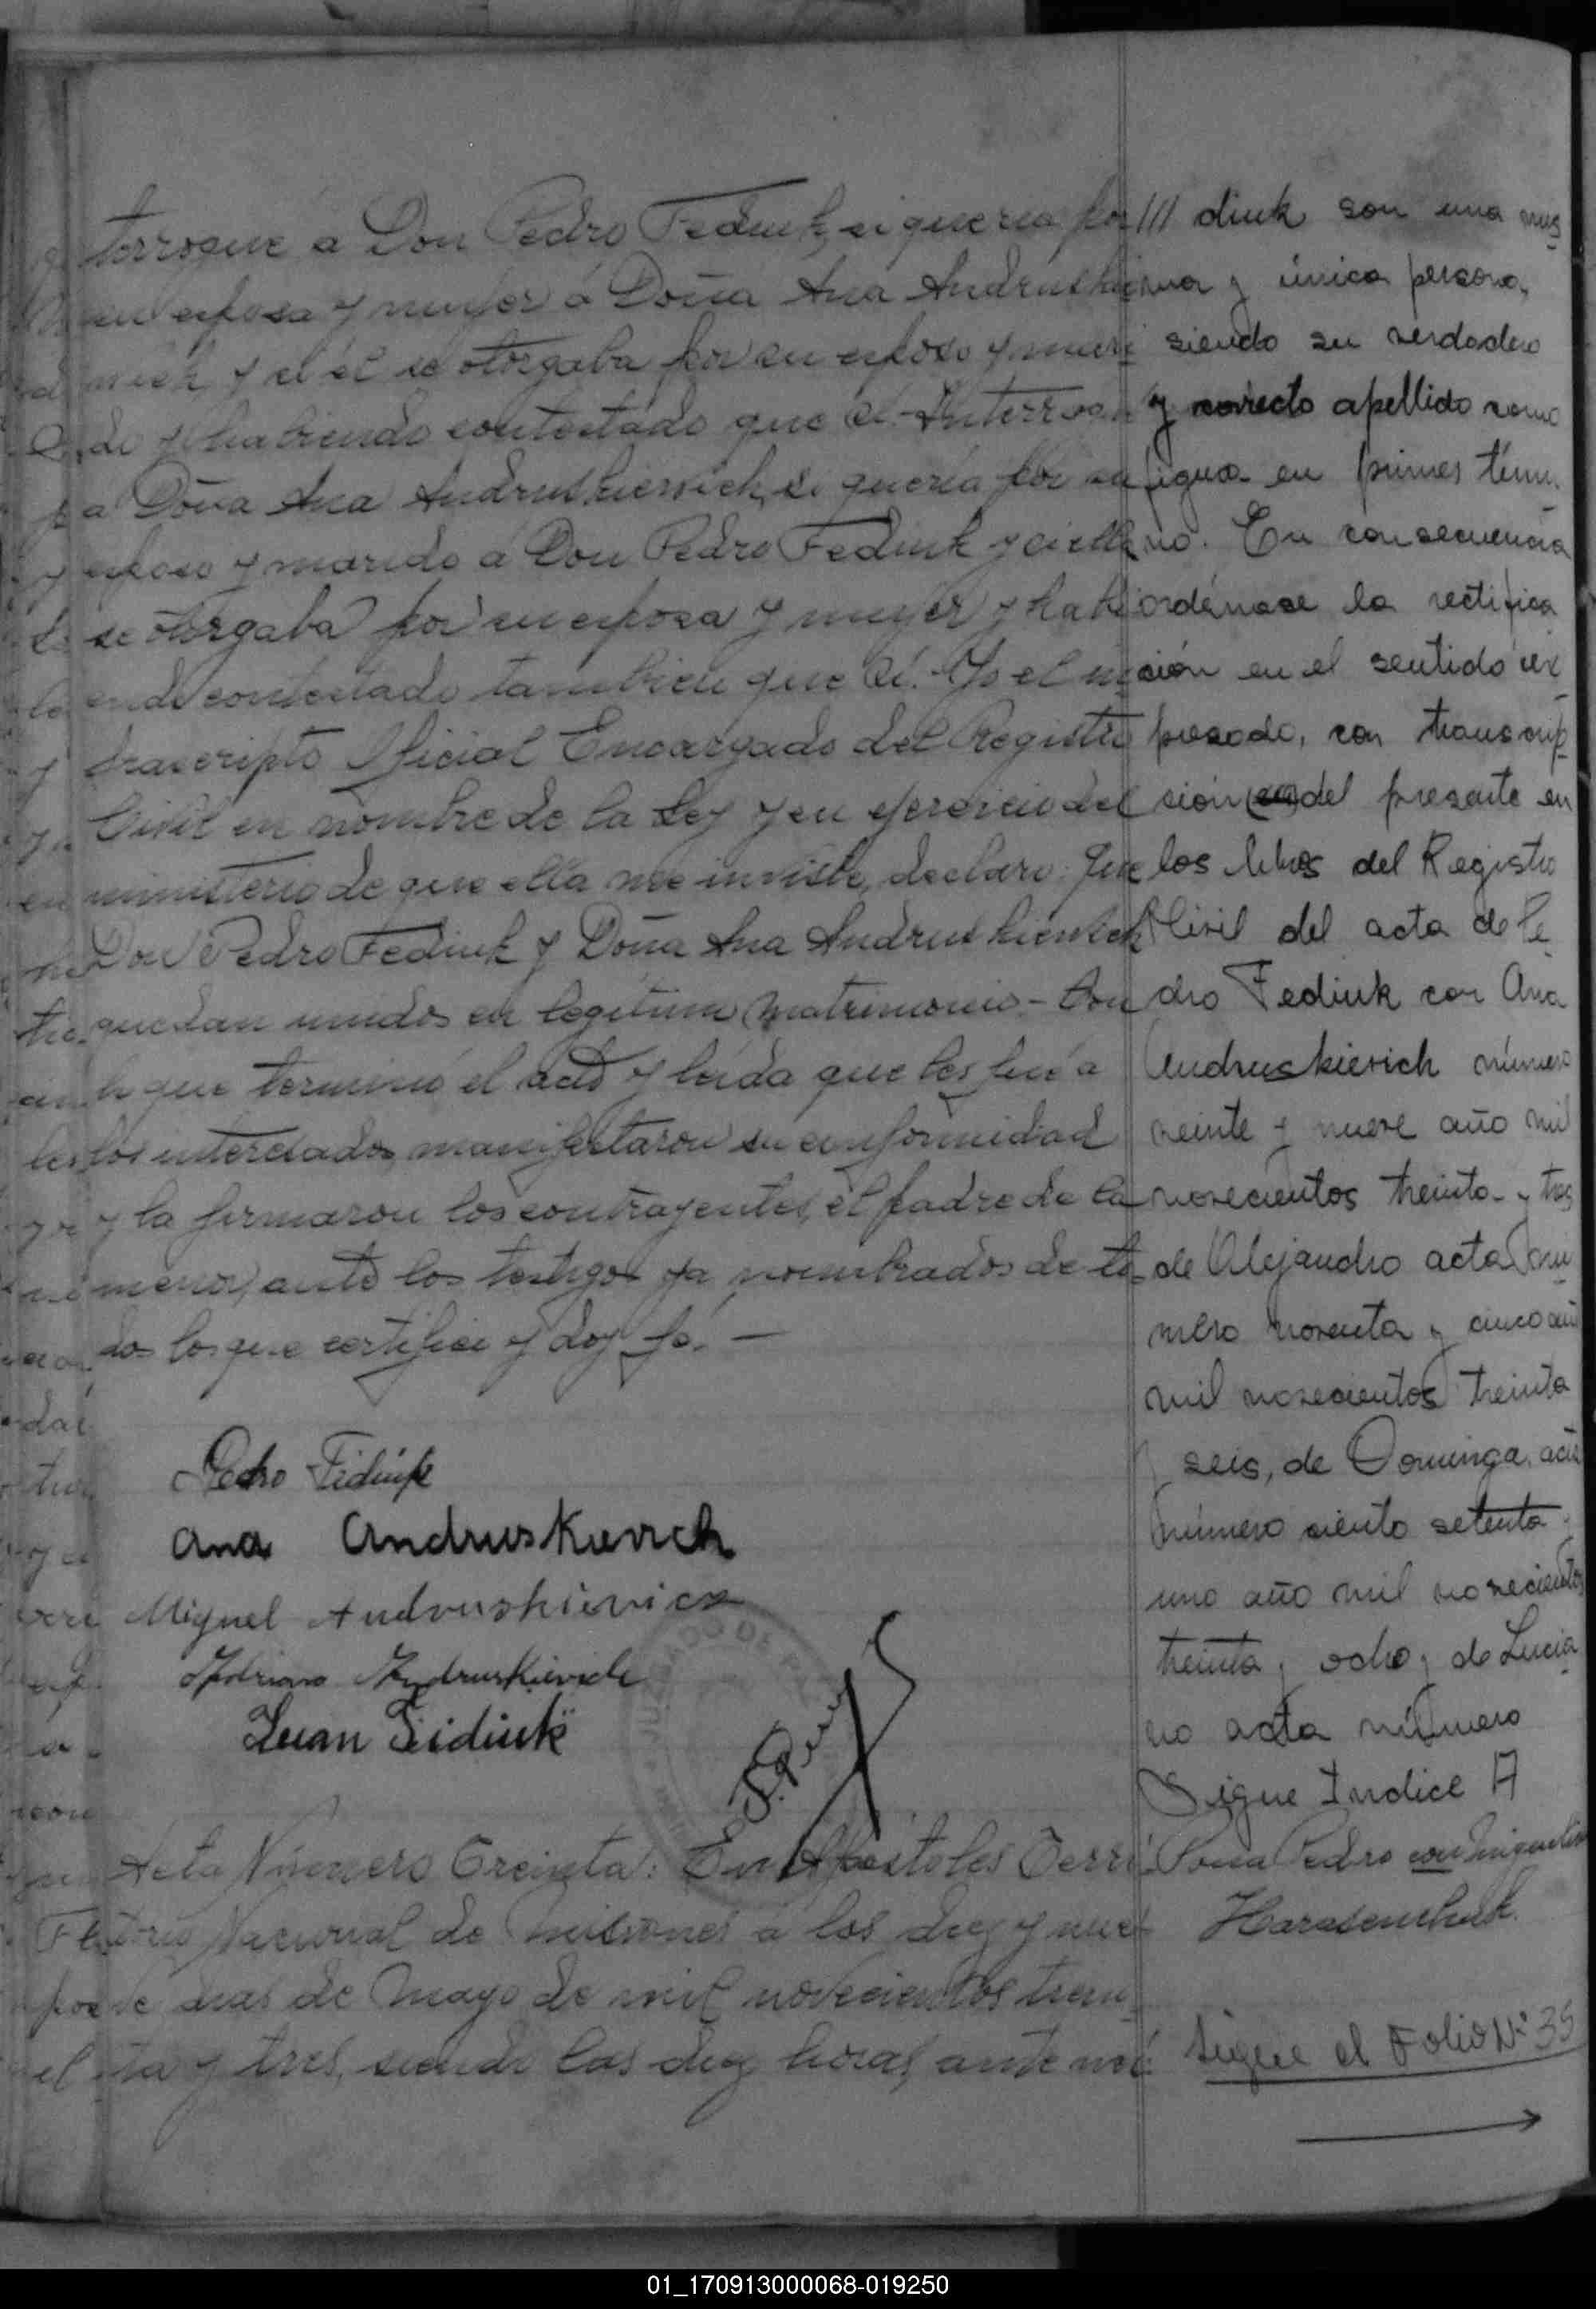 terrogué á Don Pedro Fediuk, si quería por
su esposa y mujer á Doña Ana Andruskie
wich y si él se otorgaba por su esposo y mari
do y habiendo contestado que si. Interrogué
a Doña Ana Andruskiewich, si quería por su
esposo y marido á Don Pedro Fediuk y si ella
se otorgaba por su esposa y mujer y habi
endo contestado tambien que si. Yo el in
frascripto Oficial Encargado del Registro
Civil en nombre de la Ley y en ejercicio del
ministerio de que ella me inviste, declaro: que
Don Pedro Fediuk y Doña Ana Andruskiewich
quedan unidos en legitimo matrimonio - Con
lo que terminó el acto y leída que les fué a
los interesados, manifestaron su conformidad
y la firmaron los contrayentes, el padre de la
menor, ante los testigos ya nombrados de to
dos los que certifico y doy fé. —
Pedro Fidiuk
Ana Andruskievich
Miguel Andruskievicz
Adriano Andruskievich
Juan Fidiuk
JUZGADO DE PAZ
Acta Número Treinta: En Apóstoles Terri
torio Nacional de Misiones á los diez y nue
ve dias de Mayo de mil novecientos trein
ta y tres, siendo las diez horas, ante mi
/// diuk son una mis
ma y única persona,
siendo su verdadero
y correcto apellido como
figura en primer térmi
no. En consecuencia
ordénase la rectifica
ción en el sentido ex
presado, con transcrip
ción del presente en
los libros del Registro
Civil del acta de Pe
dro Fediuk con Ana
Andruskievich número
veinte y nueve año mil
novecientos treinta y tres
de Alejandro acta nú
mero noventa y cinco año
mil novecientos treinta
y seis, de Dominga, acta
número ciento setenta y
uno año mil novecientos
treinta y ocho y de Lucia
no acta número
Sigue Indice A
Pedro con
Harasemchuk.
Sigue el Folio Nº 35
01_170913000068-019250